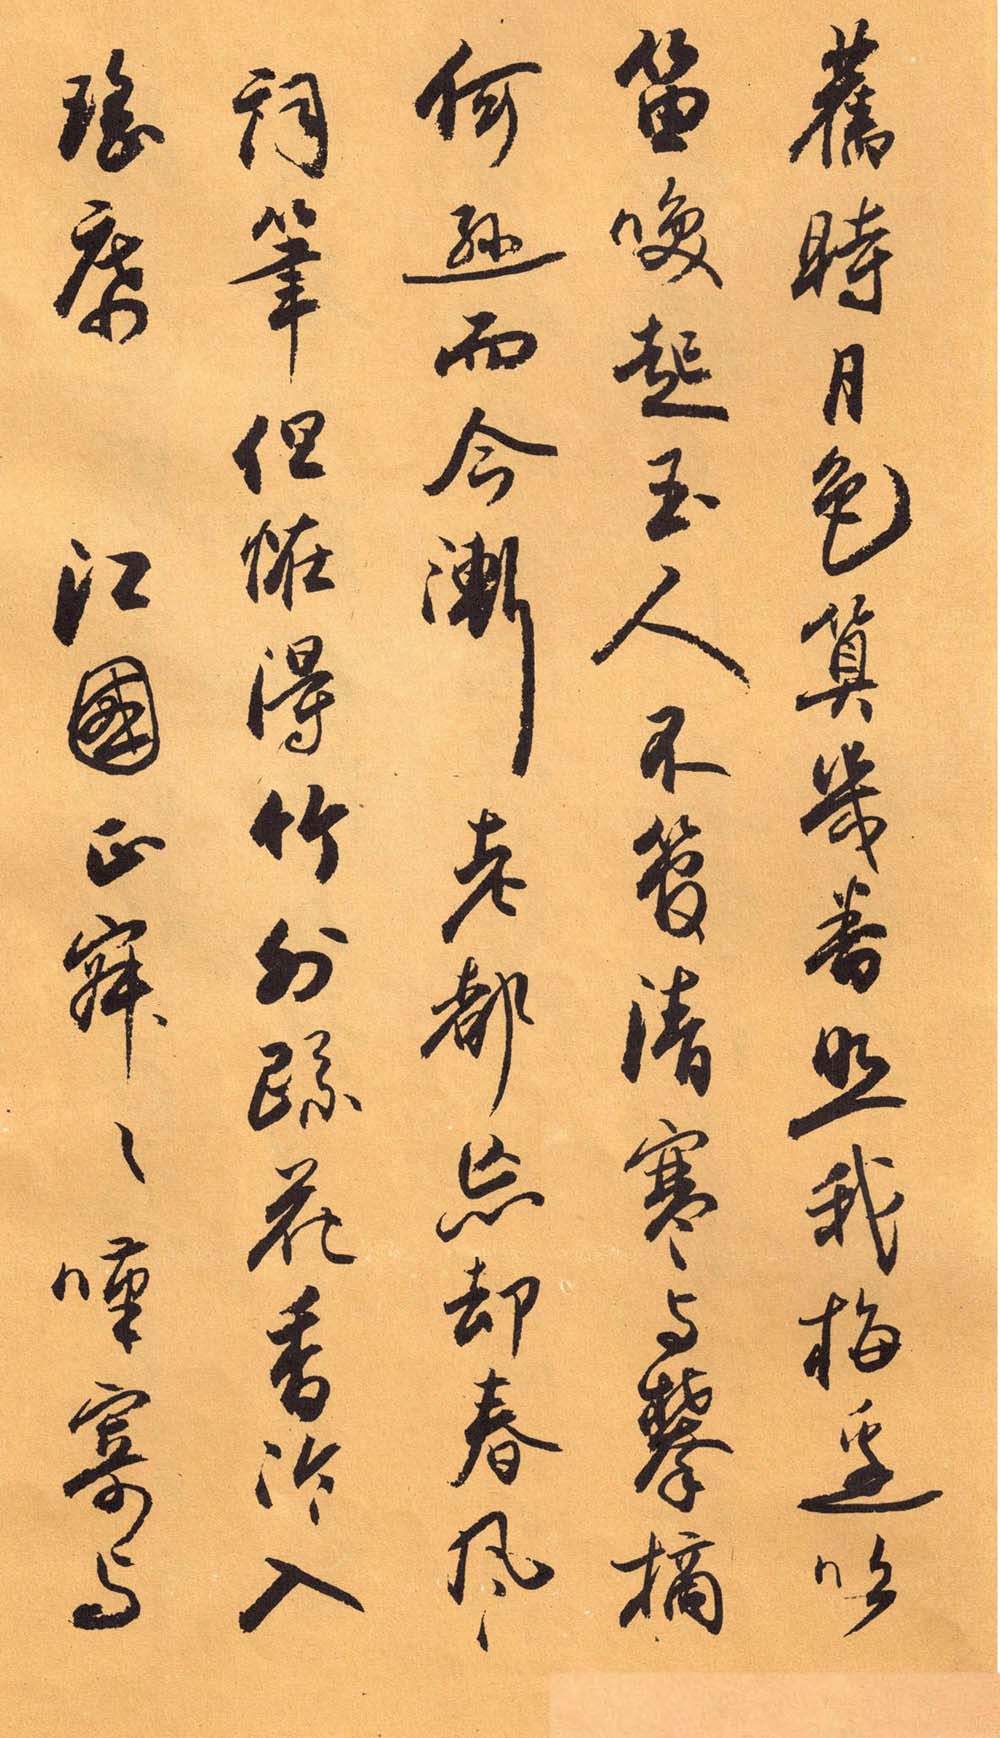 舊時月色算幾番照我梅邊吹
笛喚起玉人不管清寒与攀摘
何遜而今漸老都忘却春風
詞筆但怪得竹外疏花香冷入
瑤席江國正寂〻嘆寄与